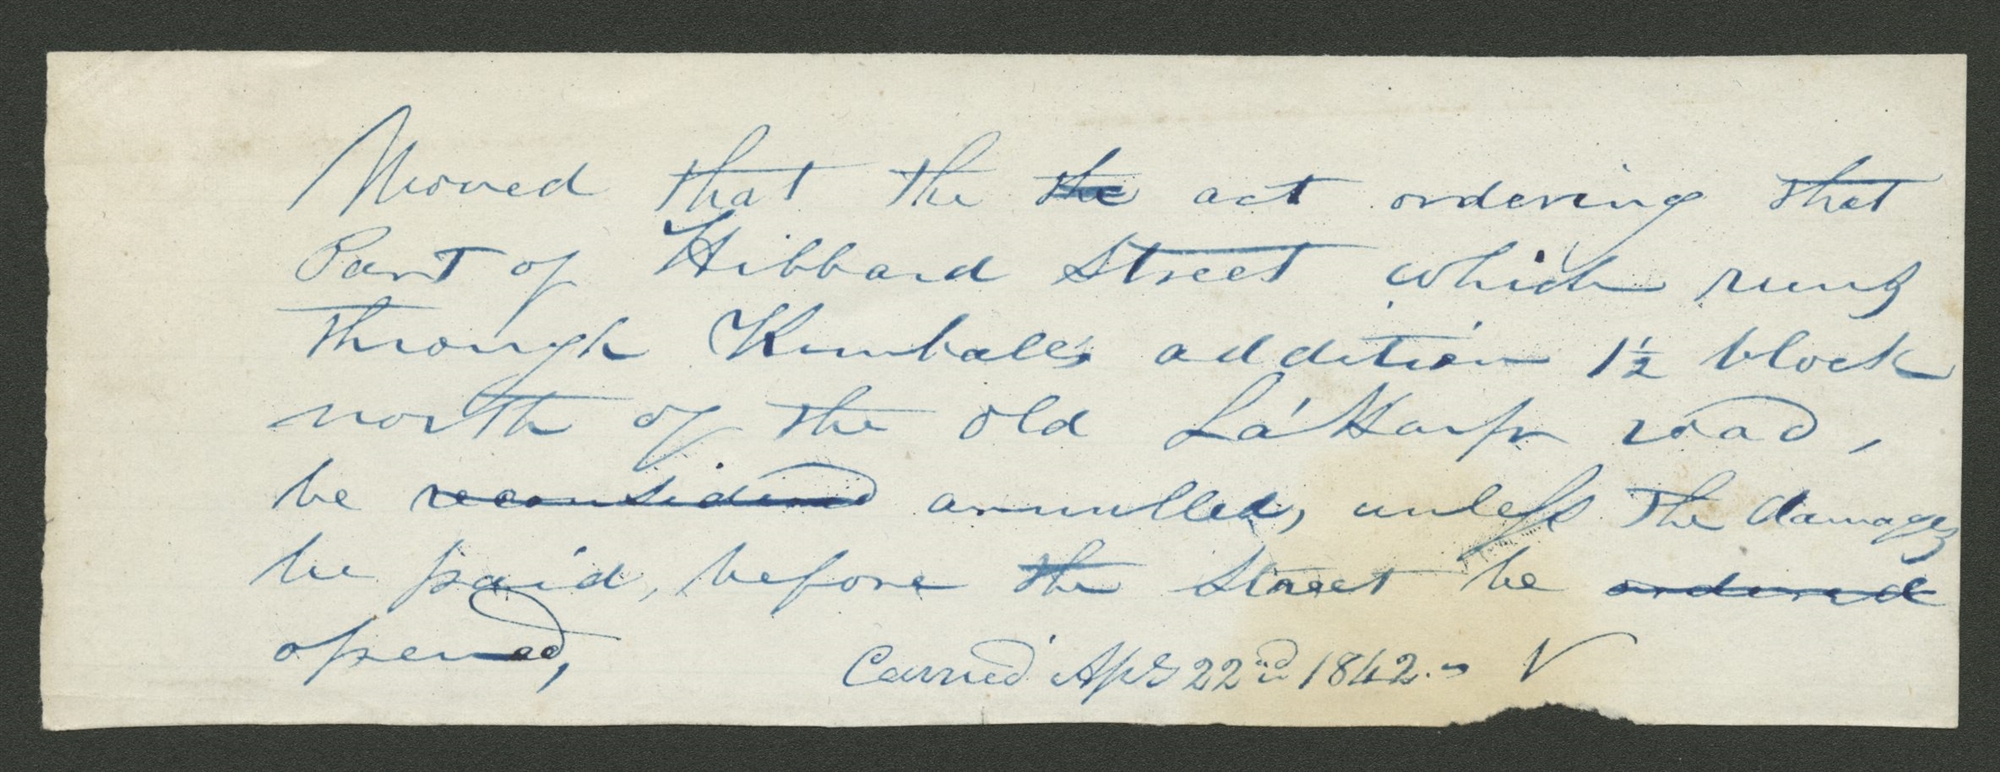 Moved that the the act ordering that
Part of Hibbard Street which runs
through Kimball's addition 1½ block
north of the old La'Harp road,
be reconsidered annulled, unless the damages
be paid, before the Street be ordered
opened,
Carried Apl 22nd 1842. V